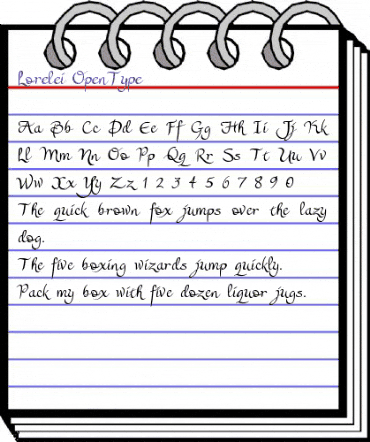 Lorelei OpenType
Aa Bb Cc Dd Ee Ff Gg Hh Ii Jj Kk
Ll Mm Nn Oo Pp Qq Rr Ss Tt Uu Vv
Ww Xx Yy Zz 1 2 3 4 5 6 7 8 9 0
The quick brown fox jumps over the lazy
dog.
The five boxing wizards jump quickly.
Pack my box with five dozen liquor jugs.